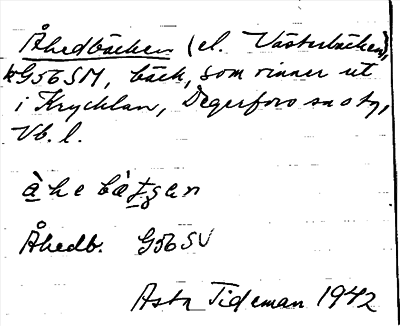 Åhedbäcken (el. Västerbäcken),
kG56SM, bäck, som rinner ut
i Krycklan, Degerfors sn o tg,
Vb. l.
Åhedb. G56SV
Asta Tideman 1942